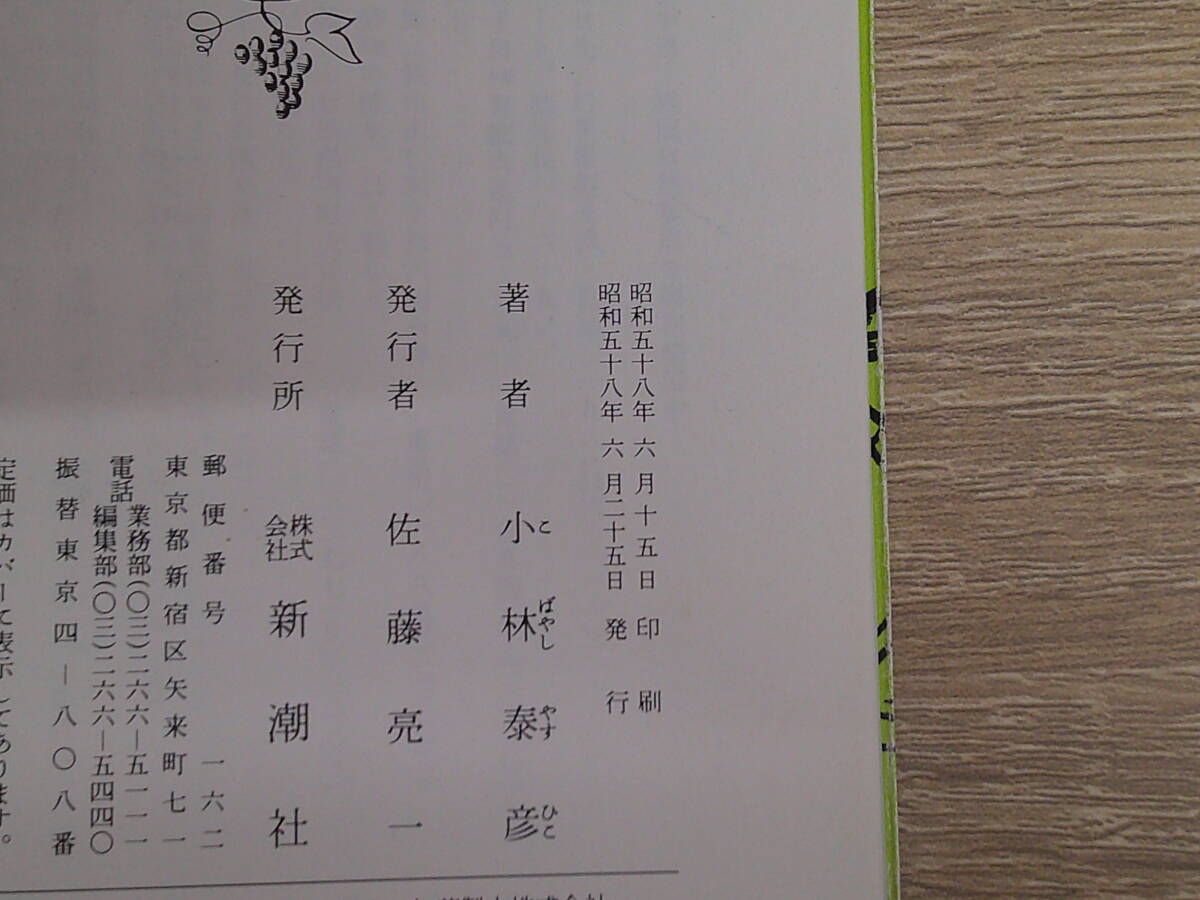 昭和五十八年 六 月 十 五 日 印 刷
昭和五十八年 六 月二十五日 発 行
著 者 小林泰彦
こ ばやし やす ひこ
発行者 佐藤亮一
発行所 株式会社 新潮社
郵便番号 一六二
東京都新宿区矢来町七一
電話 業務部(〇三)二六六―五一一一
編集部(〇三)二六六―五四四〇
振替東京四―八〇八番
定価はカバーに表示してあります。